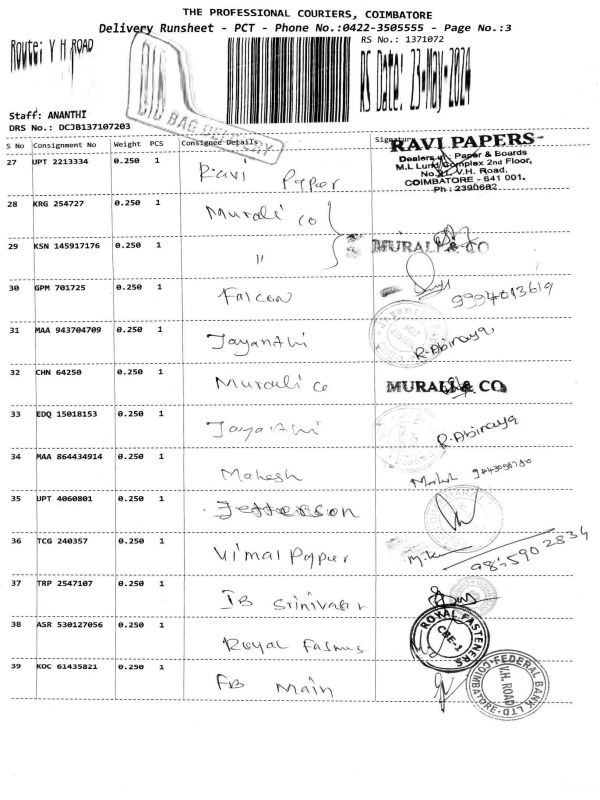 THE PROFESSIONAL COURIERS, COIMBATORE
Delivery Runsheet - PCT - Phone No.:0422-3505555 - Page No.:3
Route: V H ROAD
RS No.: 1371072
RS Date: 23-May-2024
Staff: ANANTHI
DRS No.: DCJB137107203
S No Consignment No Weight PCS Consignee Details Signature
RAVI PAPERS
Dealers in : Paper & Boards
M.L Lund Complex 2nd Floor,
No. 21, V.H. Road,
COIMBATORE - 641 001.
Ph : 2390662
27 UPT 2213334 0.250 1 Ravi Paper
28 KRG 254727 0.250 1 Murali co
29 KSN 145917176 0.250 1 " MURALI & CO
30 GPM 701725 0.250 1 Falcon 9994013619
31 MAA 943704709 0.250 1 Jayanthi R. Abinaya
32 CHN 64250 0.250 1 Murali co MURALI & CO
33 EDQ 15018153 0.250 1 Jayanthi R. Abinaya
34 MAA 864434914 0.250 1 Mahesh
35 UPT 4060801 0.250 1 Jefferson
36 TCG 240357 0.250 1 Vimal Paper
37 TRP 2547107 0.250 1 IB Srinivasan
38 ASR 530127056 0.250 1 Royal ROYAL FASTENERS CBE-1
39 KOC 61435821 0.250 1 FB Main FEDERAL BANK LTD V.H. ROAD COIMBATORE